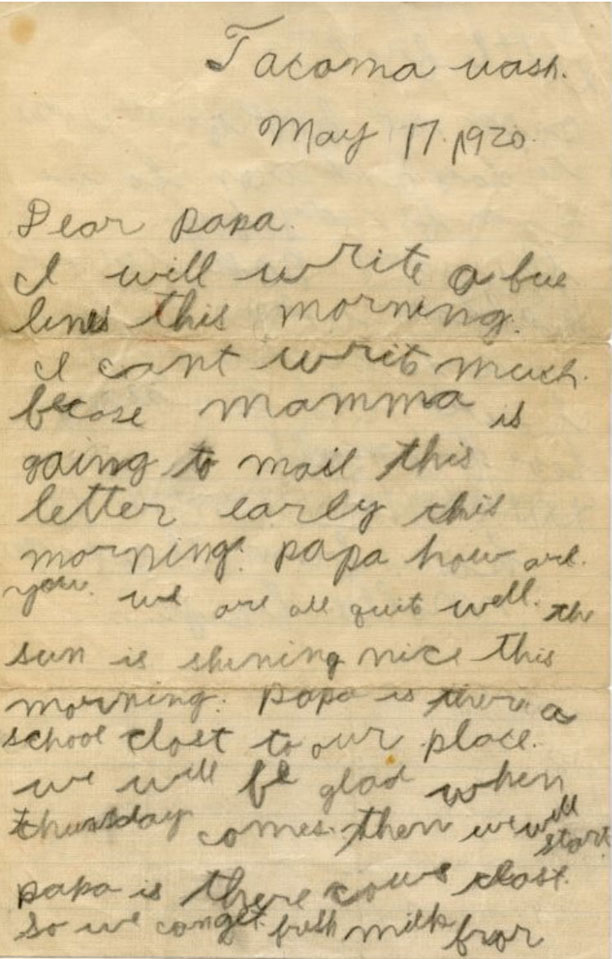 Tacoma wash.
May 17. 1920.
Dear papa.
I will write a fue
lines this morning.
I cant write much.
becose mamma is
going to mail this
letter early this
morning. papa how are.
you. we are all quit well. the
sun is shining nice this
morning. papa is there a
school clost to our place.
we will be glad when
thursday comes. then we will
start
papa is there cows closte.
so we can get fresh milk fror